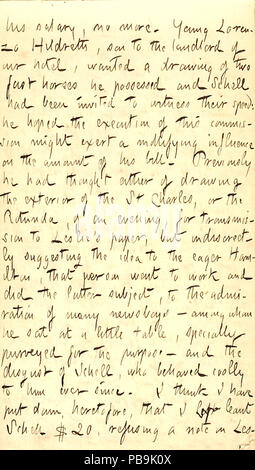 his salary, no more. Young Loren-
zo Hildreth, son to the landlord of
our hotel, wanted a drawing of two
fast horses he possessed and Schell
had been invited to witness their speed:
he hoped the execution of this commis-
sion might exert a mollifying influence
on the amount of his bill. Previously
he had thought either of drawing
the exterior of the St Charles, or the
Rotunda, of an evening, for transmis-
sion to Leslie's paper, but indiscreet-
ly suggesting the idea to the eager Ham-
ilton, that person went to work and
did the latter subject, to the admi-
ration of many newsboys — among whom
he sat at a little table, specially
purveyed for the purpose — and the
disgust of Schell, who behaved coolly
to him ever since. I think I have
put down, heretofore, that I lent
Schell $20, refusing a note on Les-
alamy
PB9K0X